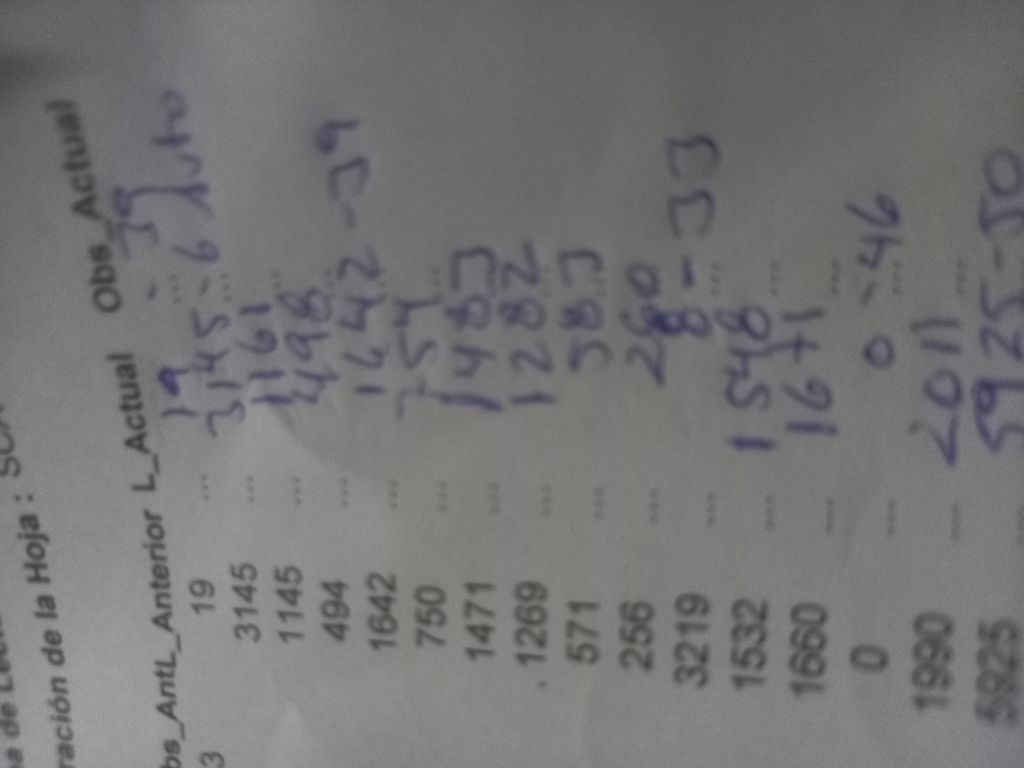 ración de la Hoja :
bs_Ant L_Anterior L_Actual Obs_Actual
3 19 ... 19 ... - 39
3145 ... 3145 ... - 6
1145 ... 1161 ...
494 ... 498 ...
1642 ... 1642 ... - 39
750 ... 754 ...
1471 ... 1483 ...
1269 ... 1282 ...
571 ... 583 ...
256 ... 260 ...
3219 ... 8 - 33
1532 ... 1548 ...
1660 ... 1671 ...
0 ... 0 - 46
1990 ... 2011 ...
5925 ... 5925 - 50